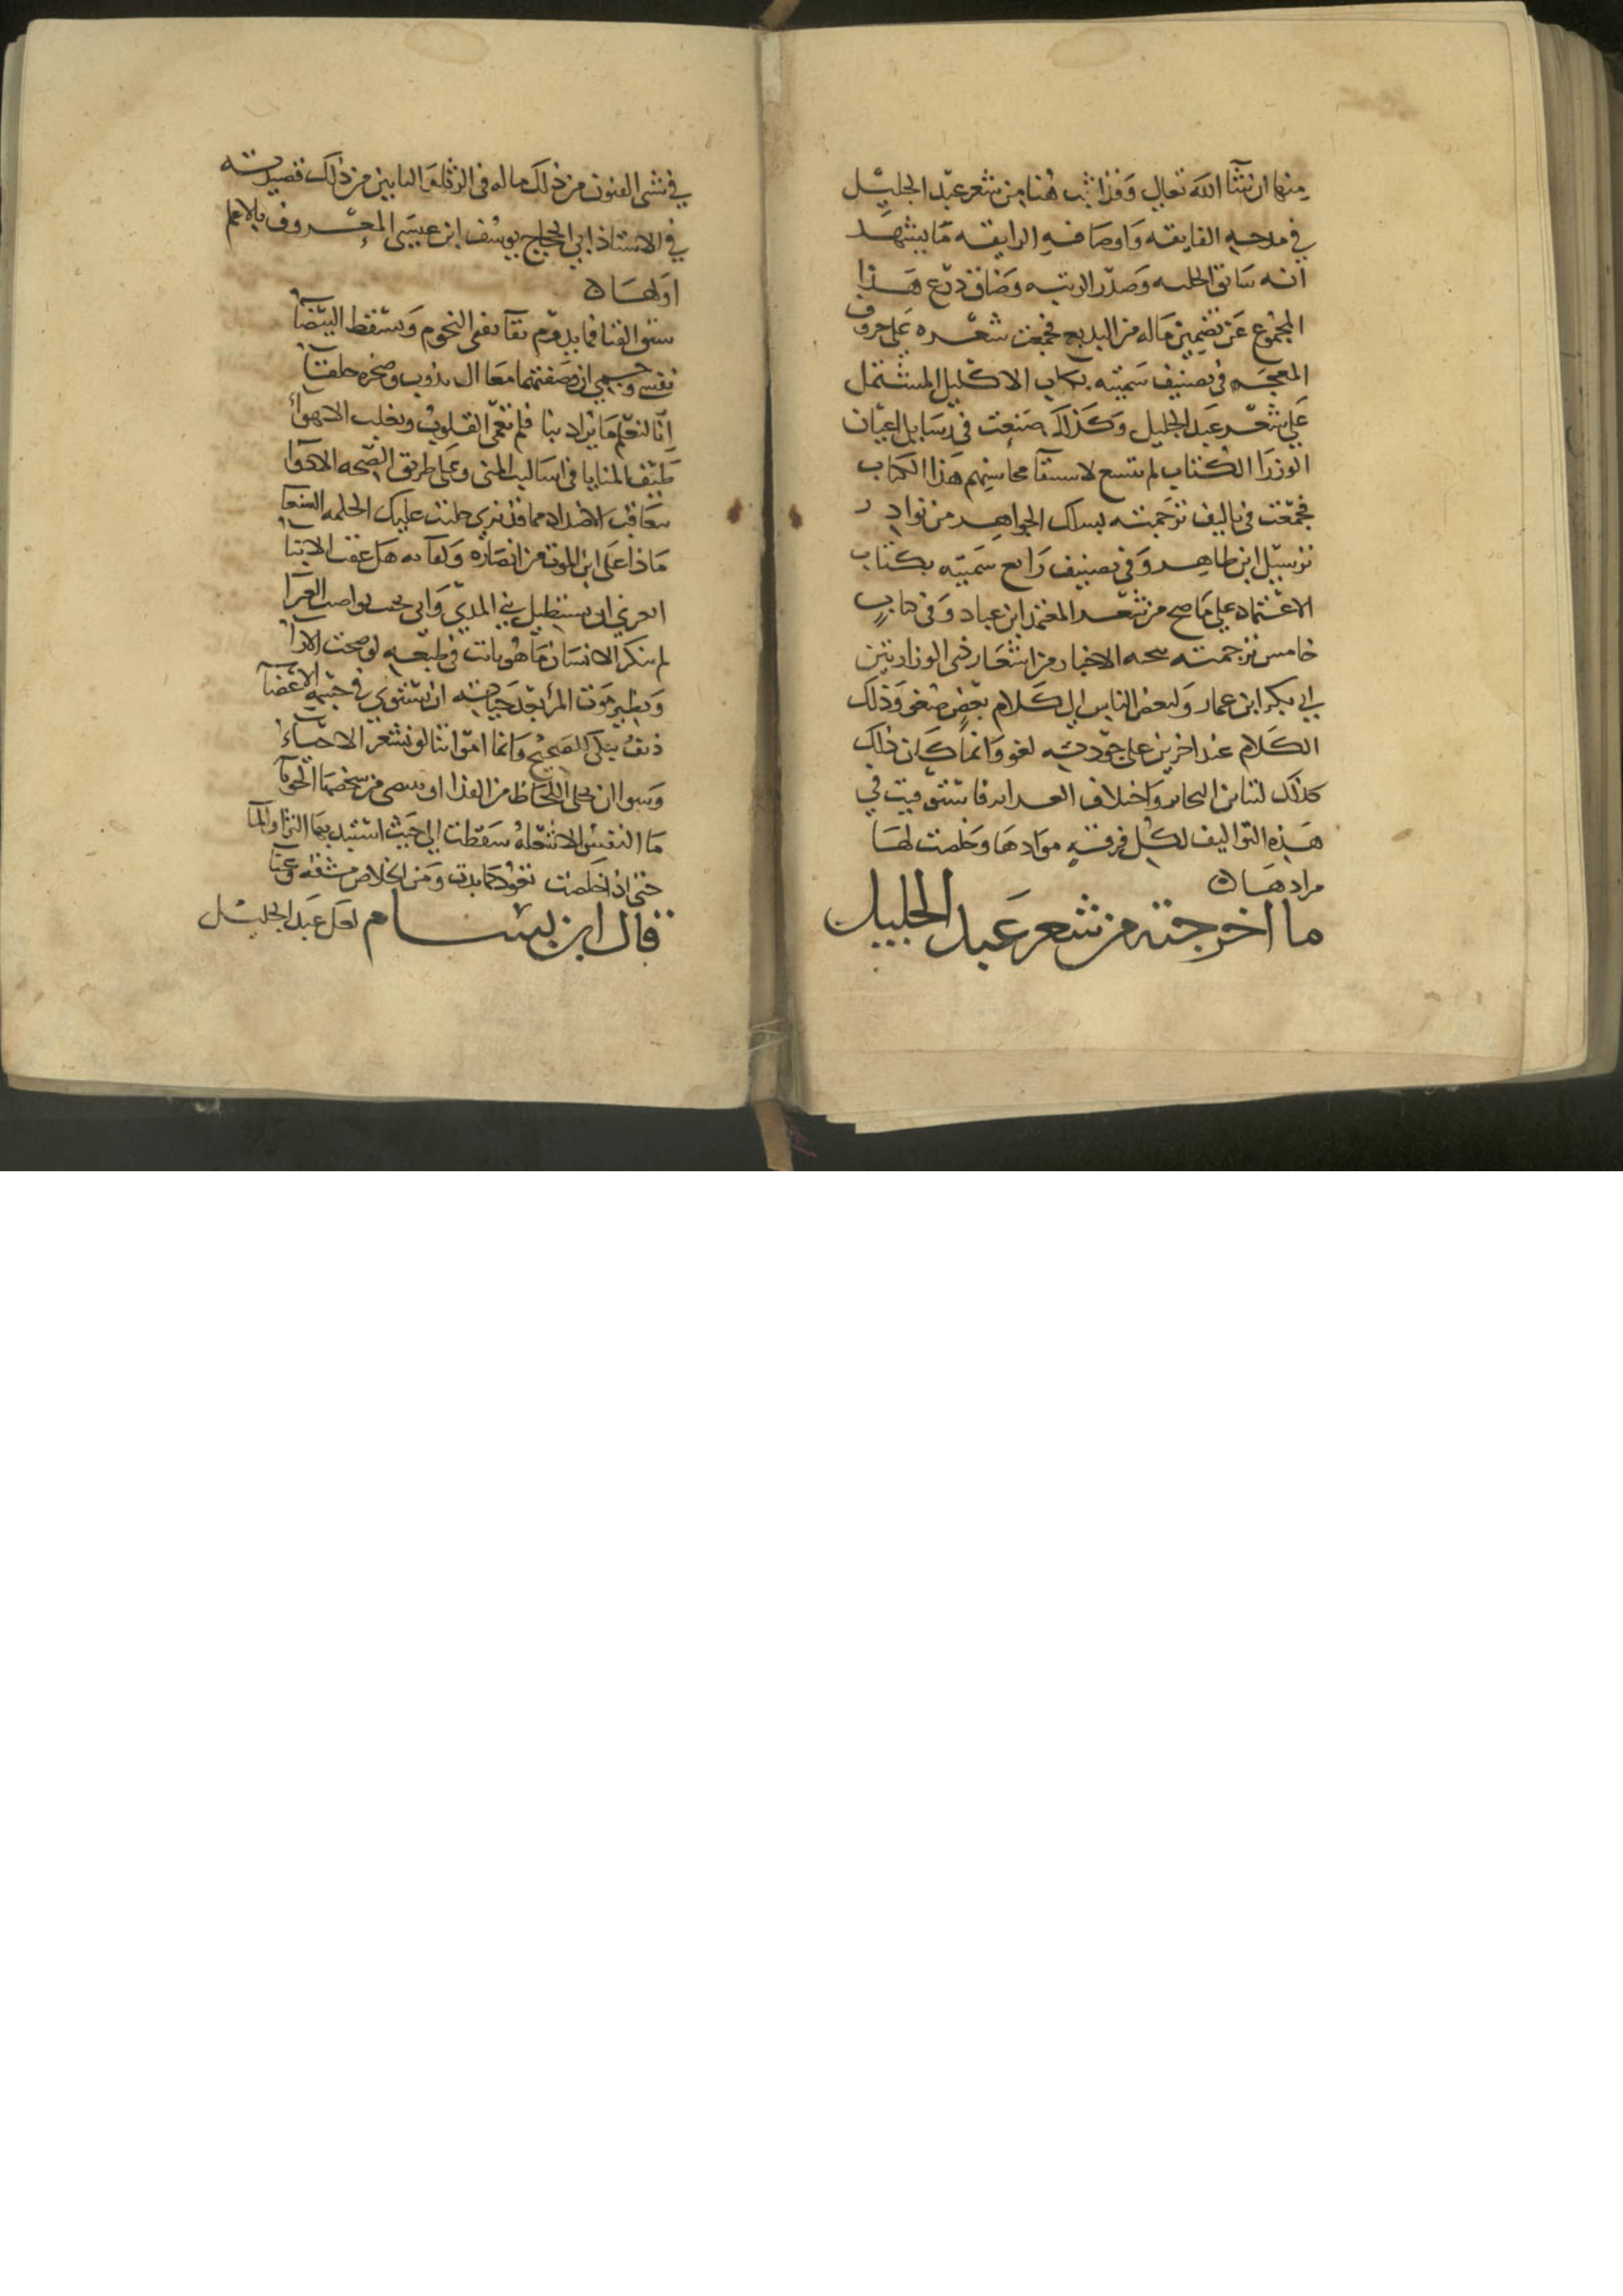 منها ان شآ الله تعالى وقد اثبت هنا من شعر عبد الجليل
في مدحه الفايقه واوصافه الرايقه ما يشهد
انه سابق الحلبه وصدر الرتبه وضاق ذرع هذا
المجموع عن تضمين ماله من البديع فجمعت شعره على حروف
المعجم في تصنيف سميته بكتاب الاكليل المشتمل
على شعر عبد الجليل وكذلك صنعت في رسايل اعيان
الوزرا الكتاب لم يتسع لاستيفآ محاسنهم هذا الكتاب
فجمعت في تاليف ترجمته بسلك الجواهر من نوادر
ترسيل ابن طاهر وفي تصنيف رابع سميته بكتاب
الاعتماد على ما صح من شعر المعتمد ابن عباد وفي كتاب
خامس ترجمته نخبه الاخبار من اشعار ذي الوزارتين
ابي بكر ابن عمار ولبعض الناس الى كلام بعض صغو وذلك
الكلام عند اخرين على جودته لغو وانما كان ذلك
كذلك لتباين النحاير واختلاف فاستوفيت في
هذه التواليف لكل فرقه موادها وخلصت لها
مرادها ه
ما اخرجته من شعر عبد الجليل
في شتى الفنون من ذلك ما له في الرثا والتابين من ذلك قصيدته
في الاستاذ ابي الحجاج يوسف ابن عيسى المعروف بالاعلم
اولها ه
سبق الفنا فما يدوم بقآ تفنى النجوم وتسقط البيضآ
نفسي وجسمي ان وصفتهما معا ال يذوب وصخره خلقآ
انا لنعلم ما يراد بنا فلم تعمى القلوب وتغلب الاهوآ
طيف المنايا في اساليب المنى وعلى طريق الصحه الادوآ
تتعاقب الاضداد مما قد ترى جلبت عليك الحكمه الشنعآ
ماذا على ابن الموت من ابصاره ولقآ به هل عقت الابنا
لم ينكر الانسان ما هو ثابت في طبعه لو صحت الارا
ونظير موت المرء بعد حياته ان تستوي في جنبه الاعضآ
دنف يبكى للصحيح وانما امواتنا لو نشعر الاحيآء
ما النفس الا شعله سقطت الى حيث استبد بها الثرى والمآ
حتى اذا خلصت تعود كما بدت ومن الخلاص مشقه وعنا
قال ابن بسام لعل عبد الجليل